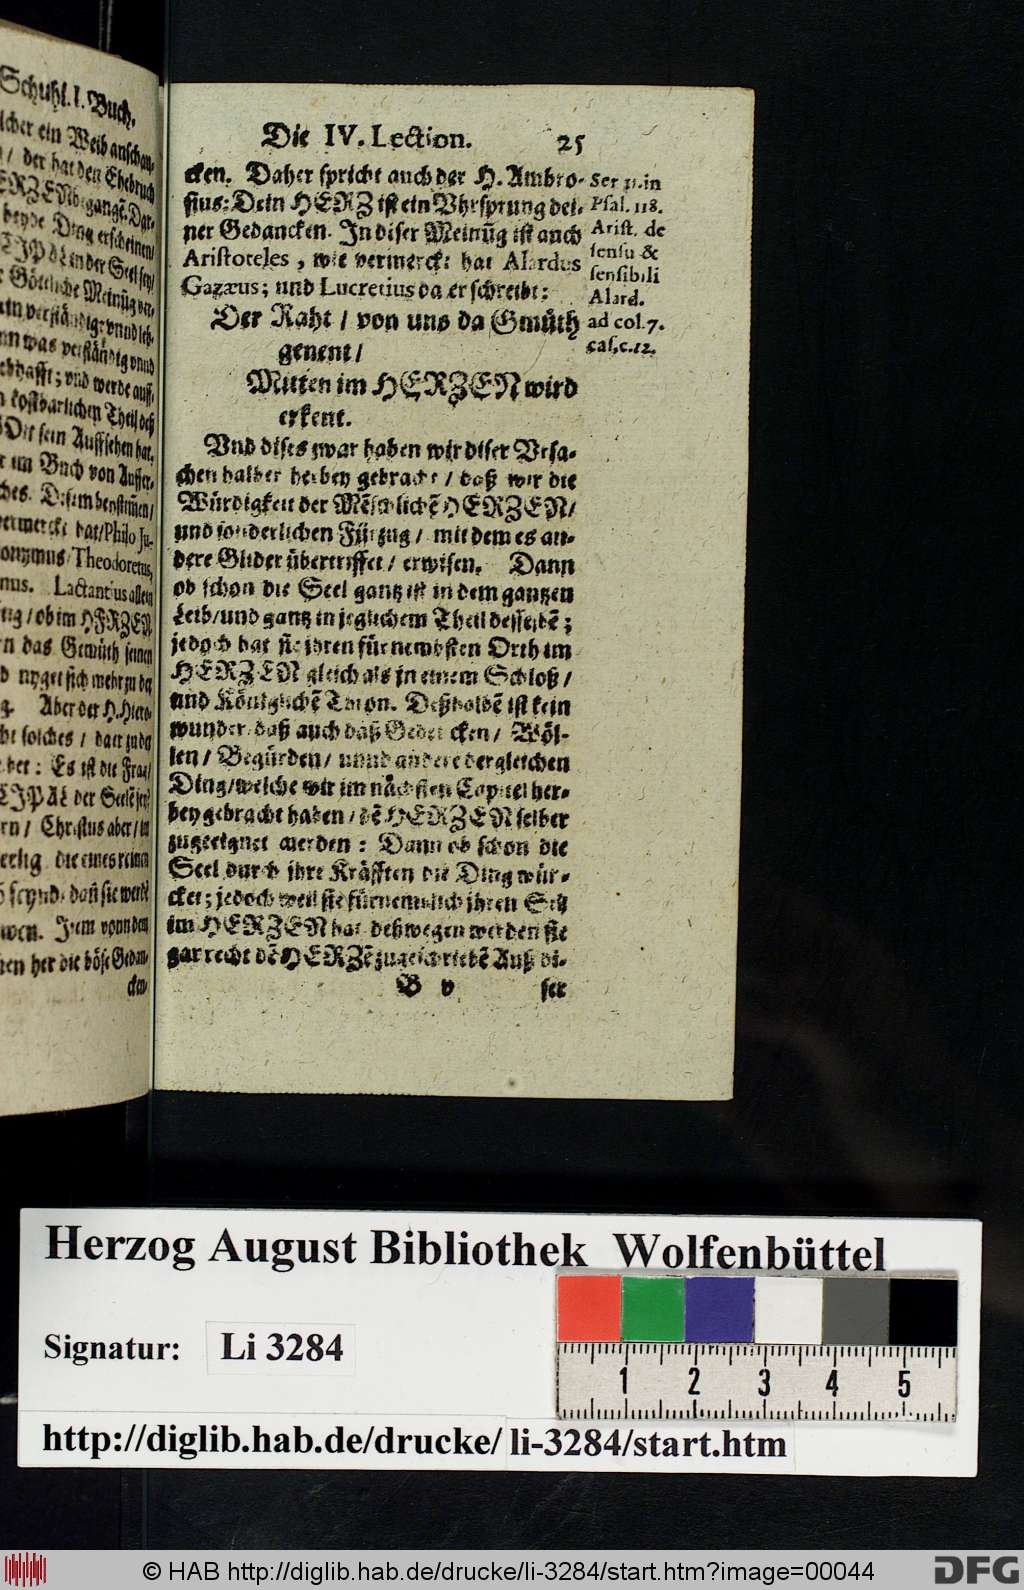 Schuhl. I. Buch.
ein Weib anschau-
/ der hat den Ehebruch
begangē. Dar-
beyde Ding erscheinen/
in der Seel sey/
Göttliche Meinūg ver-
verständigr vnnd leh-
was verständig vnnd
; vnd werde auff-
kostbarlichen Theil deß
sein Auffsehen hat.
im Buch von Auffer-
Disem beystim̃en/
vermerckt hat/ Philo Ju-
Theodoretus,
nus. Lactantius allein
/ ob im HERZEN
das Gemüth seinen
sich mehr zu der
Aber der H. Hiero-
solches / dann zu da
: Es ist die Frag/
der Seelē sey?
/ Christus aber / in
die eines reinen
seynd dañ sie werdē
Item vonn dem
her die böse Gedan-
cken-
Die IV. Lection. 25
cken. Daher spricht auch der H. Ambro-
sius: Dein HERZ ist ein Vhrsprung dei-
ner Gedancken. In diser Meinūg ist auch
Aristoteles, wie vermerckt hat Alardus
Gazæus; und Lucretius da er schreibt:
Der Raht / von uns da Gmüth
genent /
Mitten im HERZEN wird
erkent.
Vnd dises zwar haben wir diser Vrsa-
chen halber herbey gebracht / daß wir die
Würdigkeit der Mēschlichē HERZEN/
und sonderlichen Fürzug / mit dem es an-
dere Glider übertriffet / erwisen. Dann
ob schon die Seel gantz ist in dem gantzen
Leib/ und gantz in jeglichem Theil desselbē;
jedoch hat sie jhren fürnembsten Orth im
HERZEN gleich als in einem Schloß /
und Königlichē Thron. Deßhalbē ist kein
wunder/ daß auch daß Gedencken / Wöl-
len / Begürden / unnd andere dergleichen
Ding/ welche wir im nächsten Capitel her-
bey gebracht haben / dē HERZEN selber
zugeeignet werden: Dann ob schon die
Seel durch ihre Kräfften die Ding wür-
cket; jedoch weil sie fürnemmlich jhren Sitz
im HERZEN hat deßwegen werden sie
gar recht dē HERZē zugeschriebē Auß di-
B v ser
Ser 11. in
Psal. 118.
Arist. de
sensu &
sensibili
Alard.
ad col. 7.
cas. c. 12.
Herzog August Bibliothek Wolfenbüttel
Signatur: Li 3284
1 2 3 4 5
http://diglib.hab.de/drucke/li-3284/start.htm
© HAB http://diglib.hab.de/drucke/li-3284/start.htm?image=00044
DFG